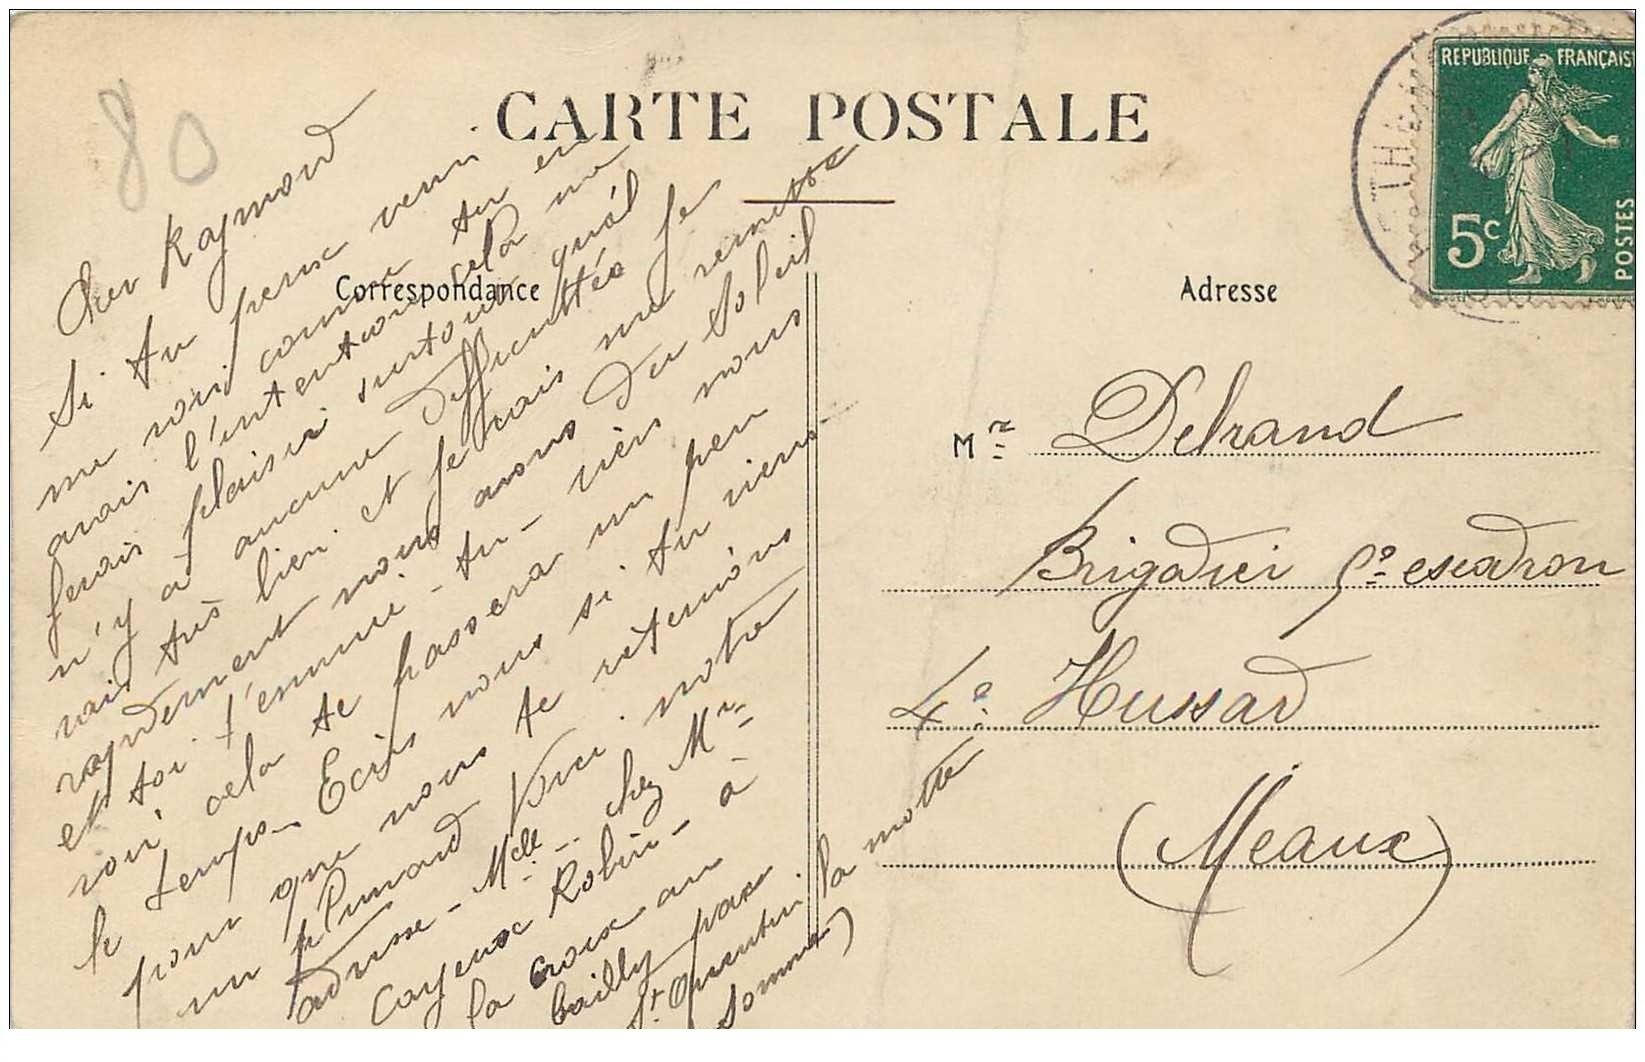 80
CARTE POSTALE
Correspondance
Adresse
REPUBLIQUE FRANÇAISE
5c
POSTES
Cher Raymond
Si tu peux veni
me voir comme tu en
avais l'intention cela me
ferais plaisir surtout qu'il
n'y a aucune difficultés Je
vais très bien et je vais me remettre
rapidement nous avons du Soleil
et toi t'ennui-tu-viens nous
voir cela te passera un peu
le temps. Ecris nous si tu viens-
pour que nous te retenions
un Plumard Voici notre
adresse-Melle chez Mr
Cayeux Robin-à
la croix au
bailly par
St Quentin la motte
Somme)
Mr Delrand
Brigadier 5e escadron
4e Hussard
(Meaux)